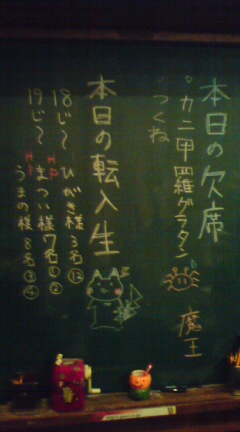 本日の欠席
・カニ甲羅グラタン
・つくね
魔王
本日の転入生
18じ〜 ひがき様 3名⑫
19じ〜 HP まつい様 7名①②
HP うまの様 8名③④